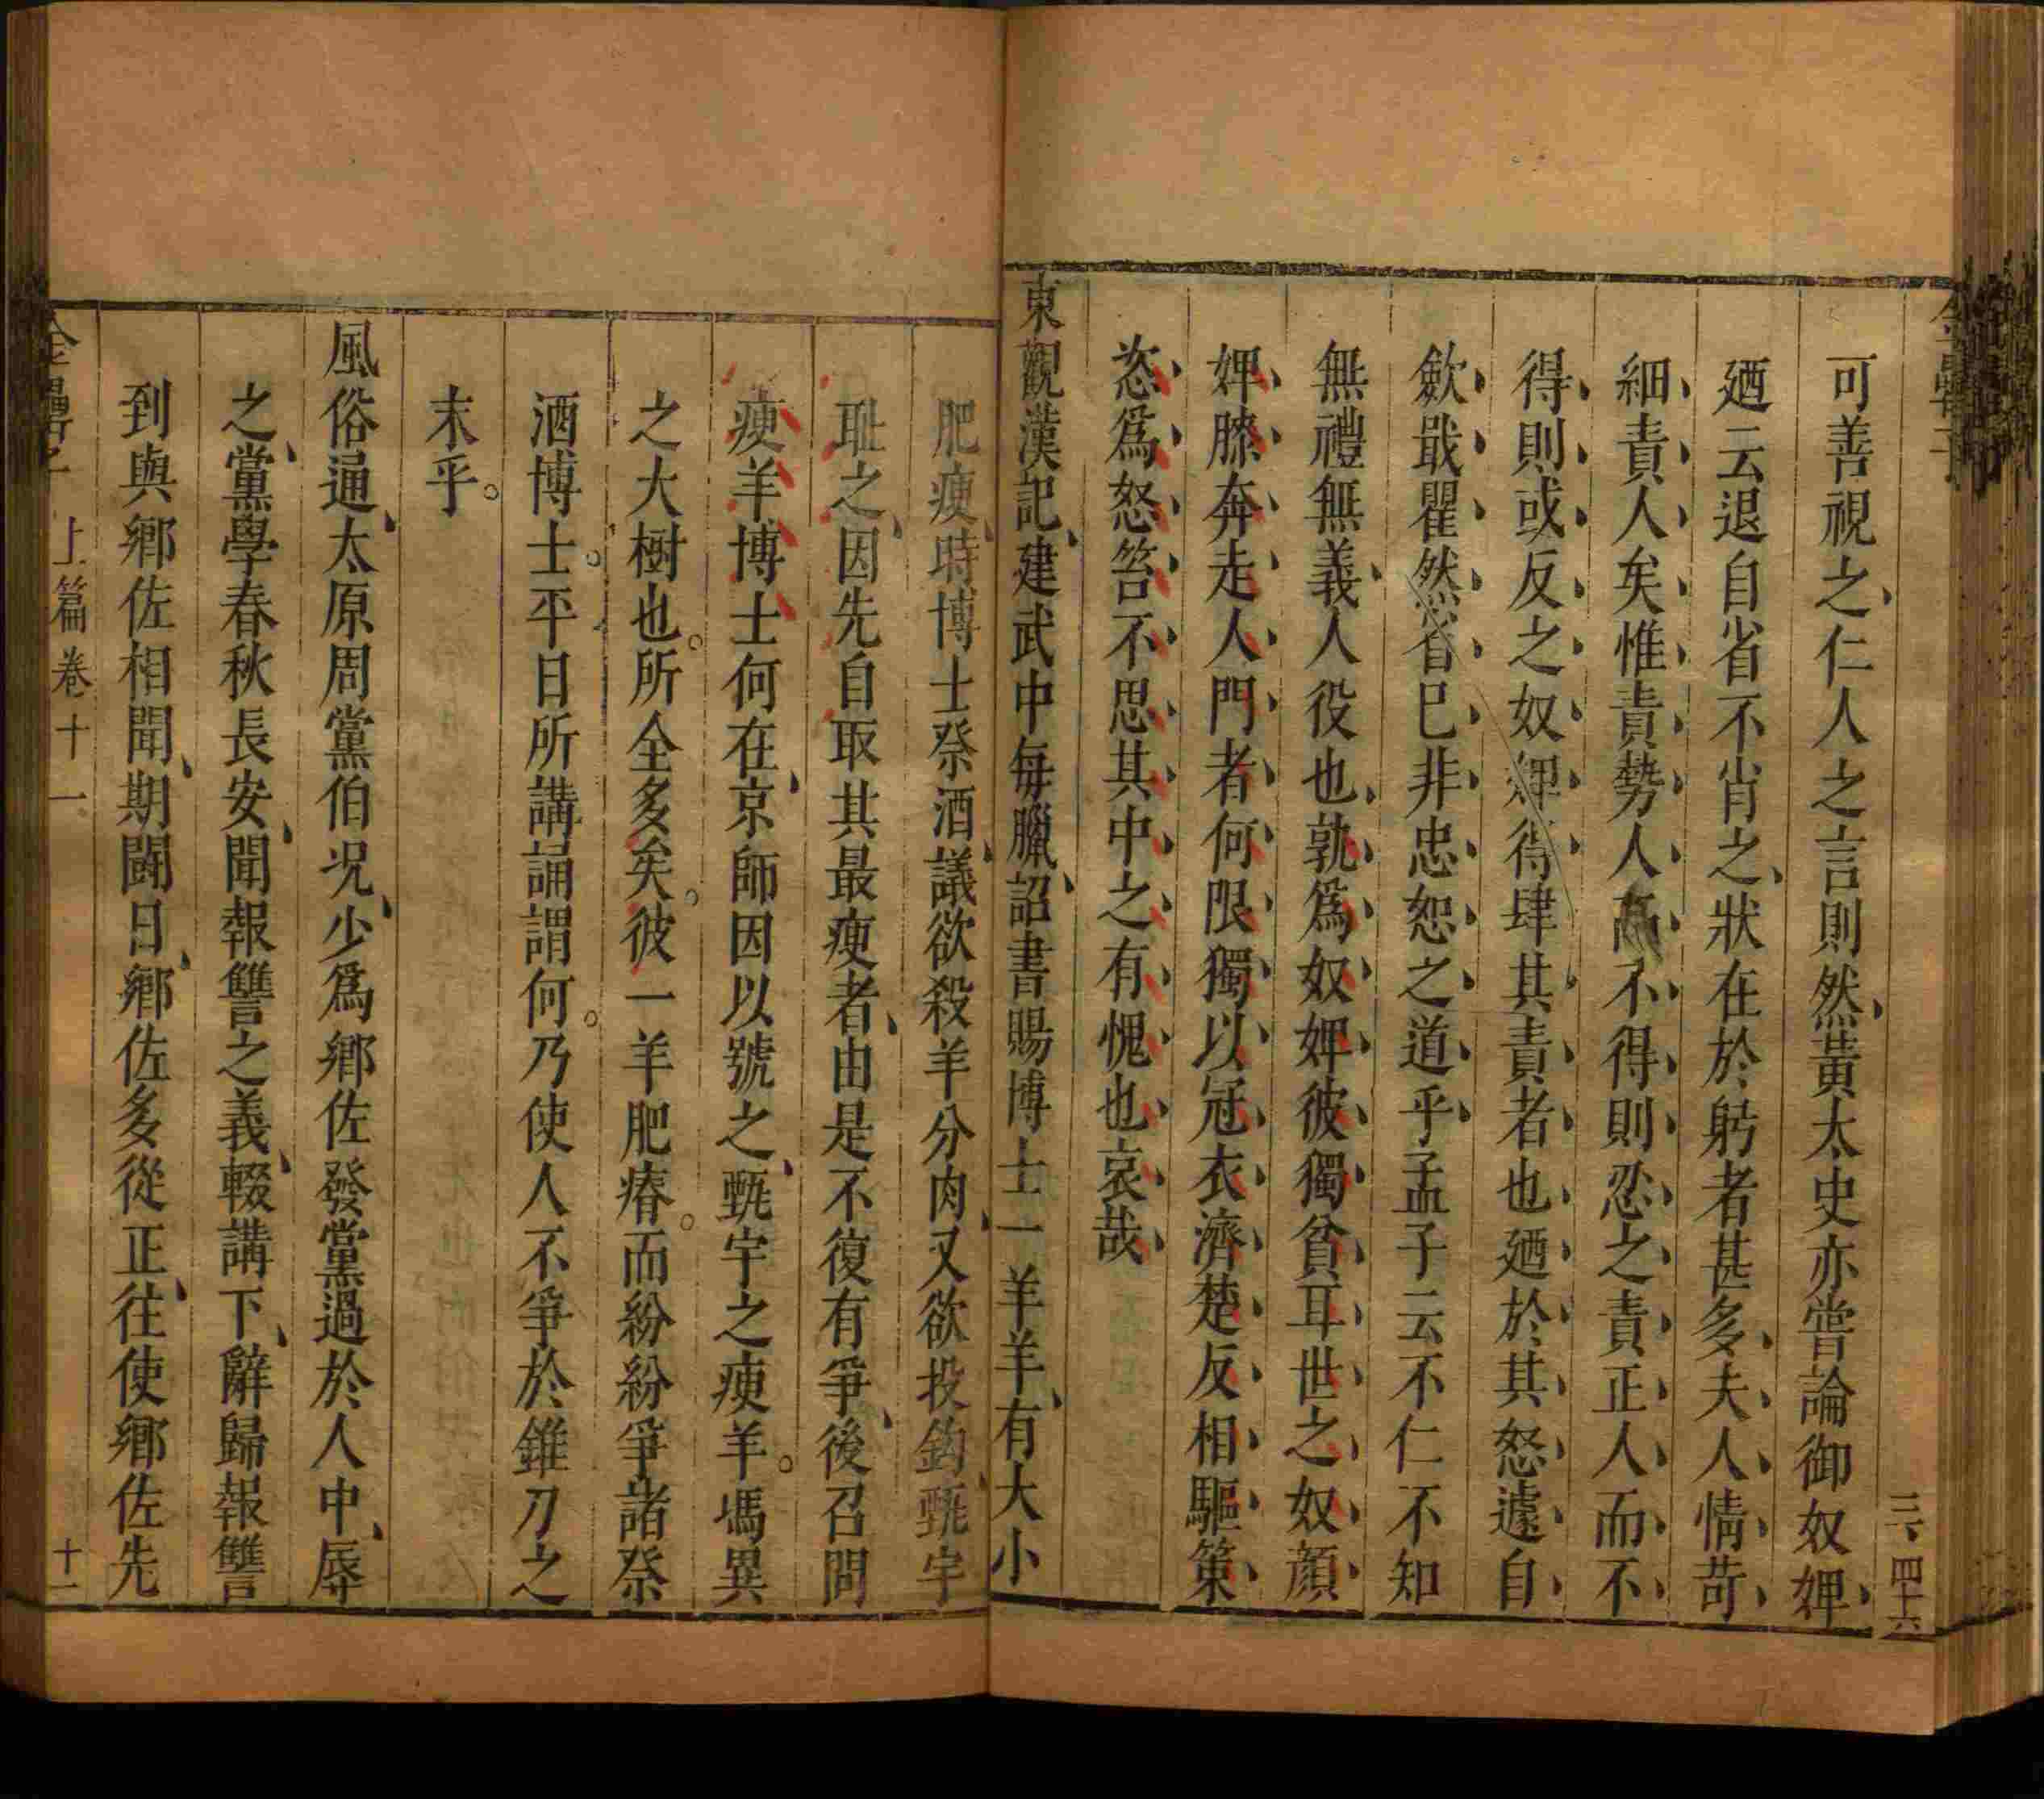 三、四十六
可善視之仁人之言則然黃太史亦嘗論御奴婢
廼云退自省不肖之狀在於躬者甚多夫人情苛
細責人矣惟責勢人而不得則忍之責正人而不
得則或反之奴婢得肆其責者也廼於其怒遽自
歛戢瞿然省已非忠恕之道乎孟子云不仁不知
無禮無義人役也孰爲奴婢彼獨貧耳世之奴顔
婢膝奔走人門者何限獨以冠衣濟楚反相驅策
恣爲怒笞不思其中之有愧也哀哉
東觀漢記建武中每臘詔書賜博士一羊羊有大小
肥瘦時博士祭酒議欲殺羊分肉又欲投鈎甄宇
耻之因先自取其最瘦者由是不復有爭後召問
瘦羊博士何在京師因以號之甄宇之瘦羊馮異
之大樹也所全多矣彼一羊肥瘠而紛紛爭諸祭
酒博士平日所講誦謂何乃使人不爭於錐刀之
末乎
風俗通太原周黨伯况少爲鄉佐發黨過於人中辱
之黨學春秋長安聞報讐之義輟講下辭歸報讐
到與鄉佐相聞期鬪日鄉佐多從正往使鄉佐先
金罍子 上篇卷十一 十一